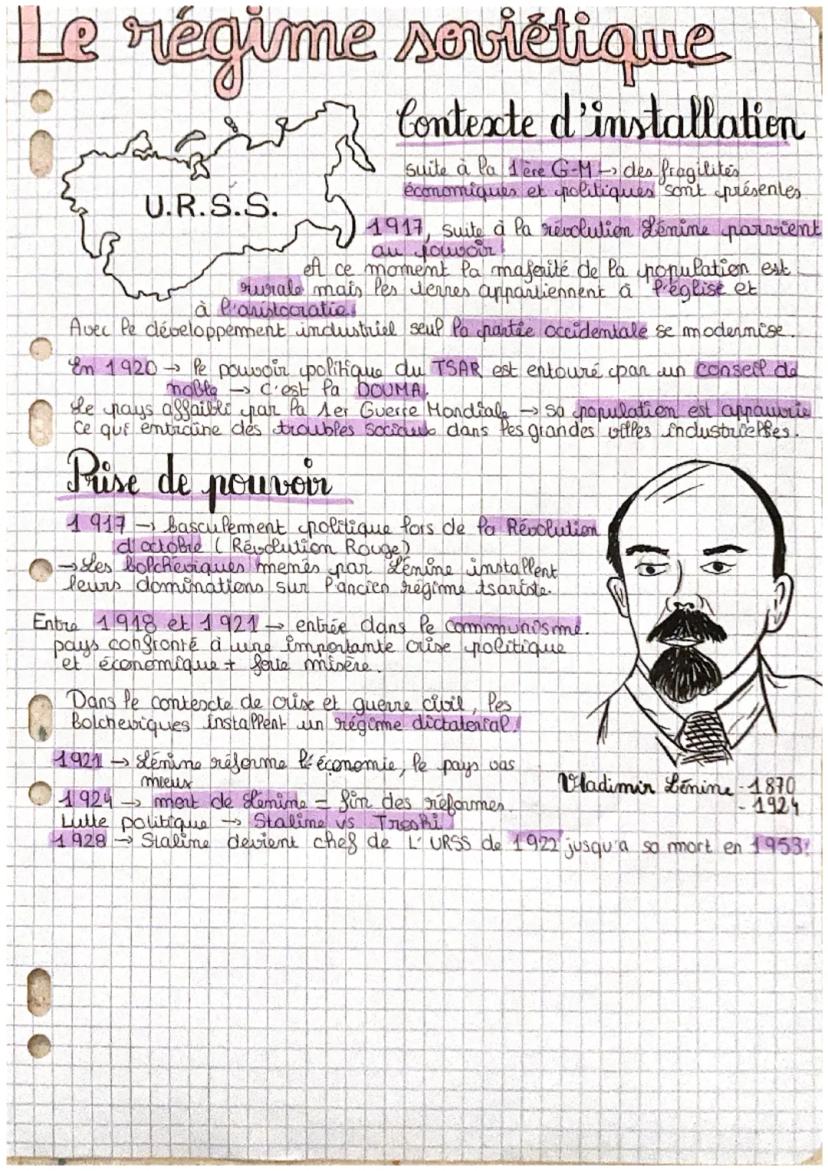 Le régime soviétique
Contexte d'installation
U.R.S.S.
suite à la 1ère G-M → des fragilités
économiques et politiques sont présentes
1917, suite à la révolution Lénine parvient
au pouvoir!
A ce moment la majorité de la population est
rurale mais les terres appartiennent à l'église et
à l'aristocratie.
Avec le développement industriel seul la partée occidentale se modernise.
En 1920 → le pouvoir politique du TSAR est entouré par un conseil de
noble → C'est la DOUMA.
Le pays affaibli par la 1er Guerre Mondiale → Sa population est appauvrie
Ce qui entraîne des troubles sociaux dans les grandes villes industrielles.
Prise de pouvoir
1917 → basculement politique lors de la Révolution
d'octobre (Révolution Rouge)
→ Les bolcheviques menés par Lénine installent
leurs dominations sur l'ancien régime tsariste.
Entre 1918 et 1921 → entrée dans le communisme.
pays confronté à une importante crise politique
et économique + forte misère.
Dans le contexte de crise et guerre civil, les
Bolcheviques installent un régime dictaterial!
1921 → Lénine réforme l'économie, le pays vas
mieux
1924 → mort de Lénine = fin des réformes.
Lutte politique → Staline vs Troski!
1928 → Staline devient chef de L'URSS de 1922 jusqu'a sa mort en 1953!
Vladimir Lénine - 1870
- 1924